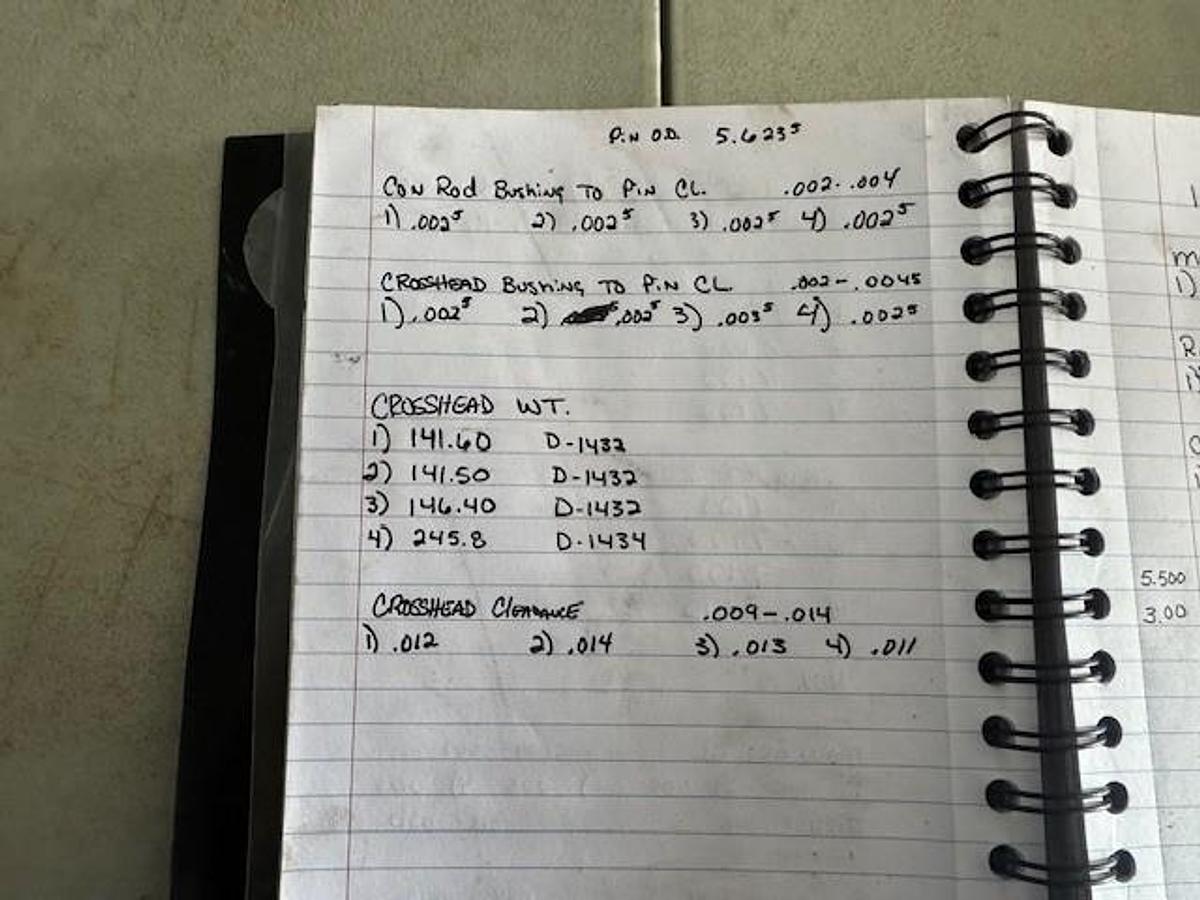 PIN O.D. 5.623⁵
CON ROD BUSHING TO PIN CL. .002-.004
1) .002⁵ 2) .002⁵ 3) .002⁵ 4) .002⁵
CROSSHEAD BUSHING TO PIN CL .002-.0045
1) .002⁵ 2) .002⁵ 3) .003⁵ 4) .002⁵
CROSSHEAD WT.
1) 141.60 D-1432
2) 141.50 D-1432
3) 146.40 D-1432
4) 245.8 D-1434
CROSSHEAD Clearance .009-.014
1) .012 2) .014 3) .013 4) .011
1)
5.500
3.00